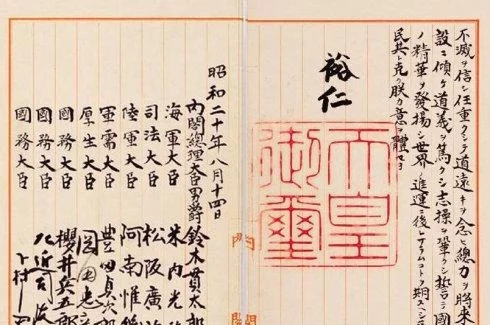 不滅ヲ信シ任重クシテ道遠キヲ念ヒ總力ヲ將來
設ニ傾ケ道義ヲ篤クシ志操ヲ鞏クシ誓テ國
ノ精華ヲ發揚シ世界ノ進運ニ後レサラムコトヲ期スヘシ
民其レ克ク朕カ意ヲ體セヨ
裕仁
天皇
御璽
昭和二十年八月十四日
內閣總理大臣男爵鈴木貫太郎
海軍大臣 米內光
司法大臣 松阪廣
陸軍大臣 阿南惟幾
軍需大臣 豊田貞次郎
厚生大臣 岡田忠
國務大臣 櫻井兵五郎
國務大臣 左近司政
國務大臣 下村